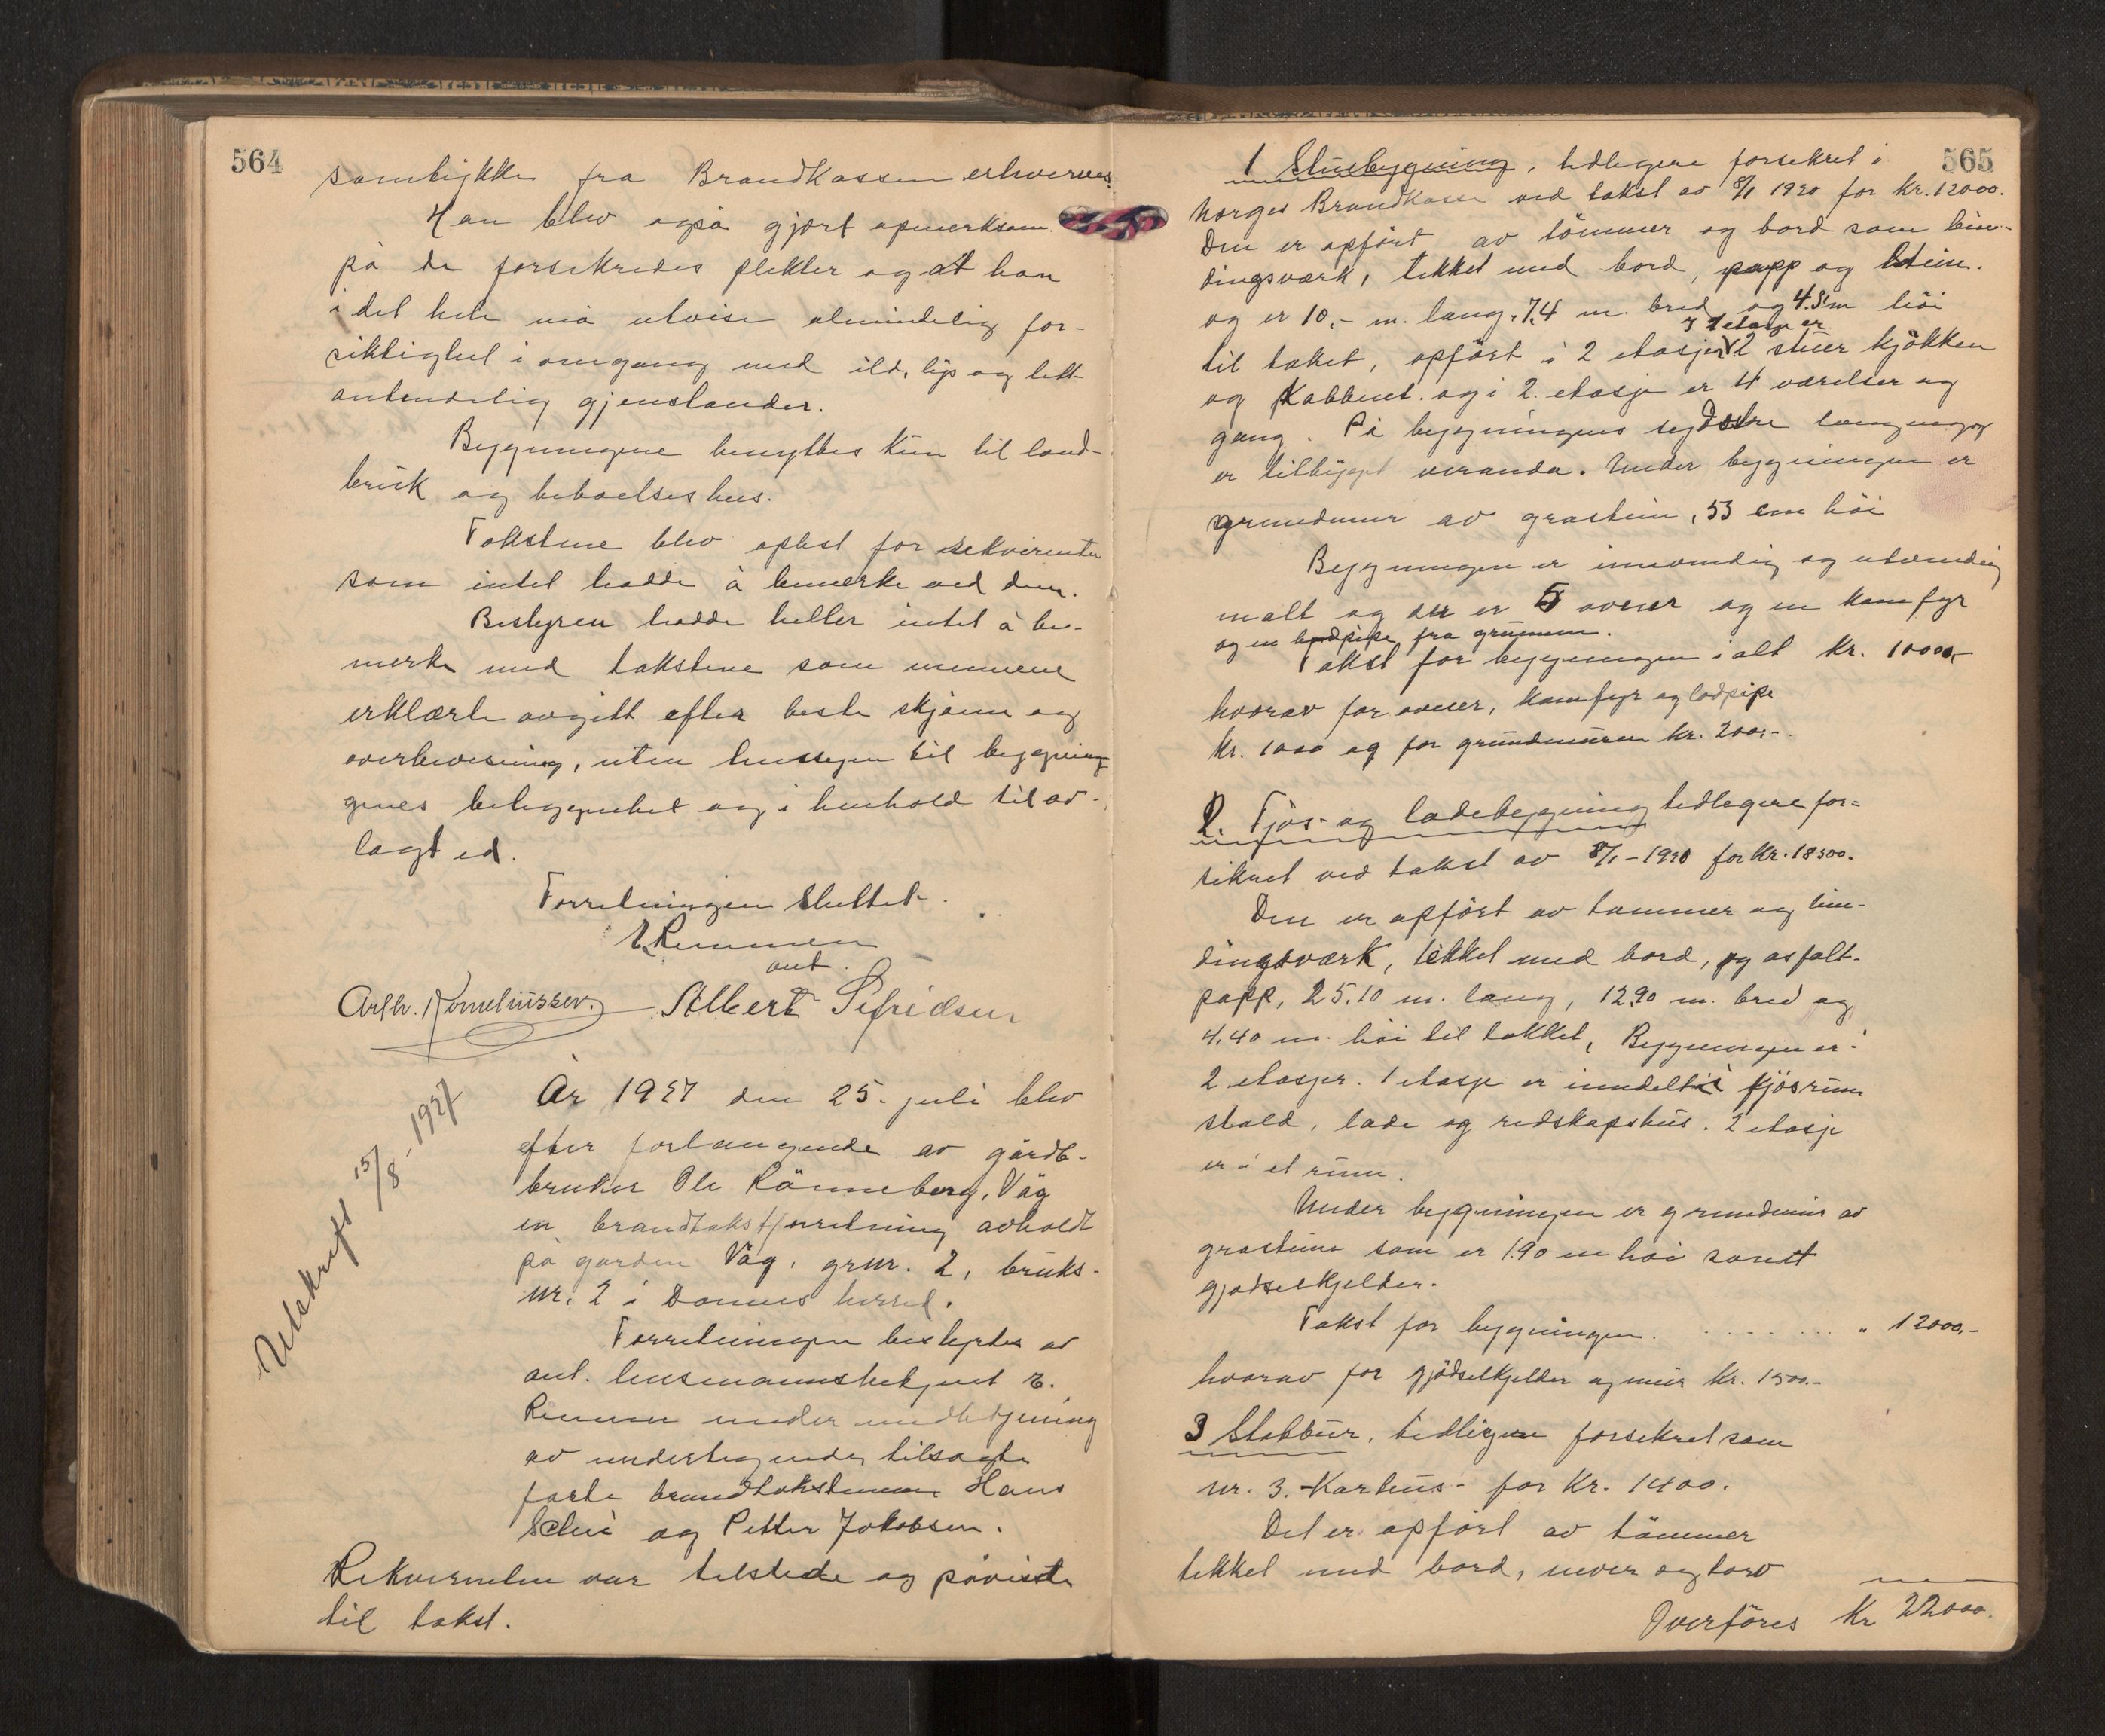 564
samtykke fra Brandkassen erhverves.
Han blev også gjort opmerksom
på de forsikredes plikter og at han
i det hele må utvise almindelig for-
siktighet i omgang med ild, lys og lett
antendelig gjenstander.
Bygningene benyttes kun til land-
bruk og beboelseshus.
Takstene blev oplest for rekvirenten
som intet hadde å bemerke ved dem.
Bestyren hadde heller intet å be-
merke med takstene som mennene
erklærte avgitt efter beste skjønn og
overbevisning, uten hensyn til bygnin-
genes beliggenhet og i henhold til av-
lagt ed.
Forretningen sluttet.
E. Remmen
aut.
Arth. Korneliussen. Albert Sefridsen
Utskrift 15/8-1927
År 1927 den 25. juli blev
efter forlangende av gårdb-
bruker Ole Rønneberg, Våg
en brandtakstforretning avholdt
på garden Våg, grnr. 2, bruks-
nr. 2 i Dønnes herred.
Forretningen bestyrtes av
aut. lensmannsbetjent E.
Remmen under medbetjening
av undertegnede tilsagte
faste brandtakstmenn Hans
Schei og Petter Jakobsen.
Rekvirenten var tilstede og påviste
til takst.
565
1 Stuebygning, tidligere forsikret i
Norges Brandkasse ved takst av 8/1 1920 for kr. 12000.
Den er opført av tømmer og bord som bin-
dingsverk, tekket med bord, papp og stein.
og er 10,- m. lang, 7,4 m. bred og 4.5 m høi
I 1 etasje er
til taket, opført i 2 etasjer V 2 stuer kjøkken
og Kabbinet. og i 2. etasje er 4 værelser og
gang. På bygningens sydøstre langvegg
er tilbygget veranda. Under bygningen er
grundmur av grastein, 53 cm høi
Bygningen er innvendig og utvendig
malt og der er 5 ovner og en komfyr
og en lodpipe fra grunnen.
Takst for bygningen i alt kr. 10000,-
hvorav for ovner, komfyr og lodpipe
kr. 1000 og for grundmuren kr. 200,-.
2. Fjøs- og ladebygning tidligere for-
sikret ved takst av 8/1-1920 for kr. 18500.
Den er opført av tømmer og bin-
dingsverk, tekket med bord, og asfalt-
papp, 25.10 m. lang, 12.90 m. bred og
4,40 m. høi til takket, Bygningen er i
2 etasjer. 1 etasje er inndelt i fjøsrum
stald, lade og redskapshus. 2 etasje
er i et rum.
Under bygningen er grundmur av
grasteine som er 1.90 m høi samt
gjødselkjelder.
Takst for bygningen. . . . . . . . . " 12000,-
hvorav for gjødselkjelder og mur kr. 1500.-
3 Stabbur, tidligere forsikret som
nr. 3. -Karhus- for kr. 1400.
Det er opført av tømmer
tekket med bord, never og torv
Overføres kr 22000.